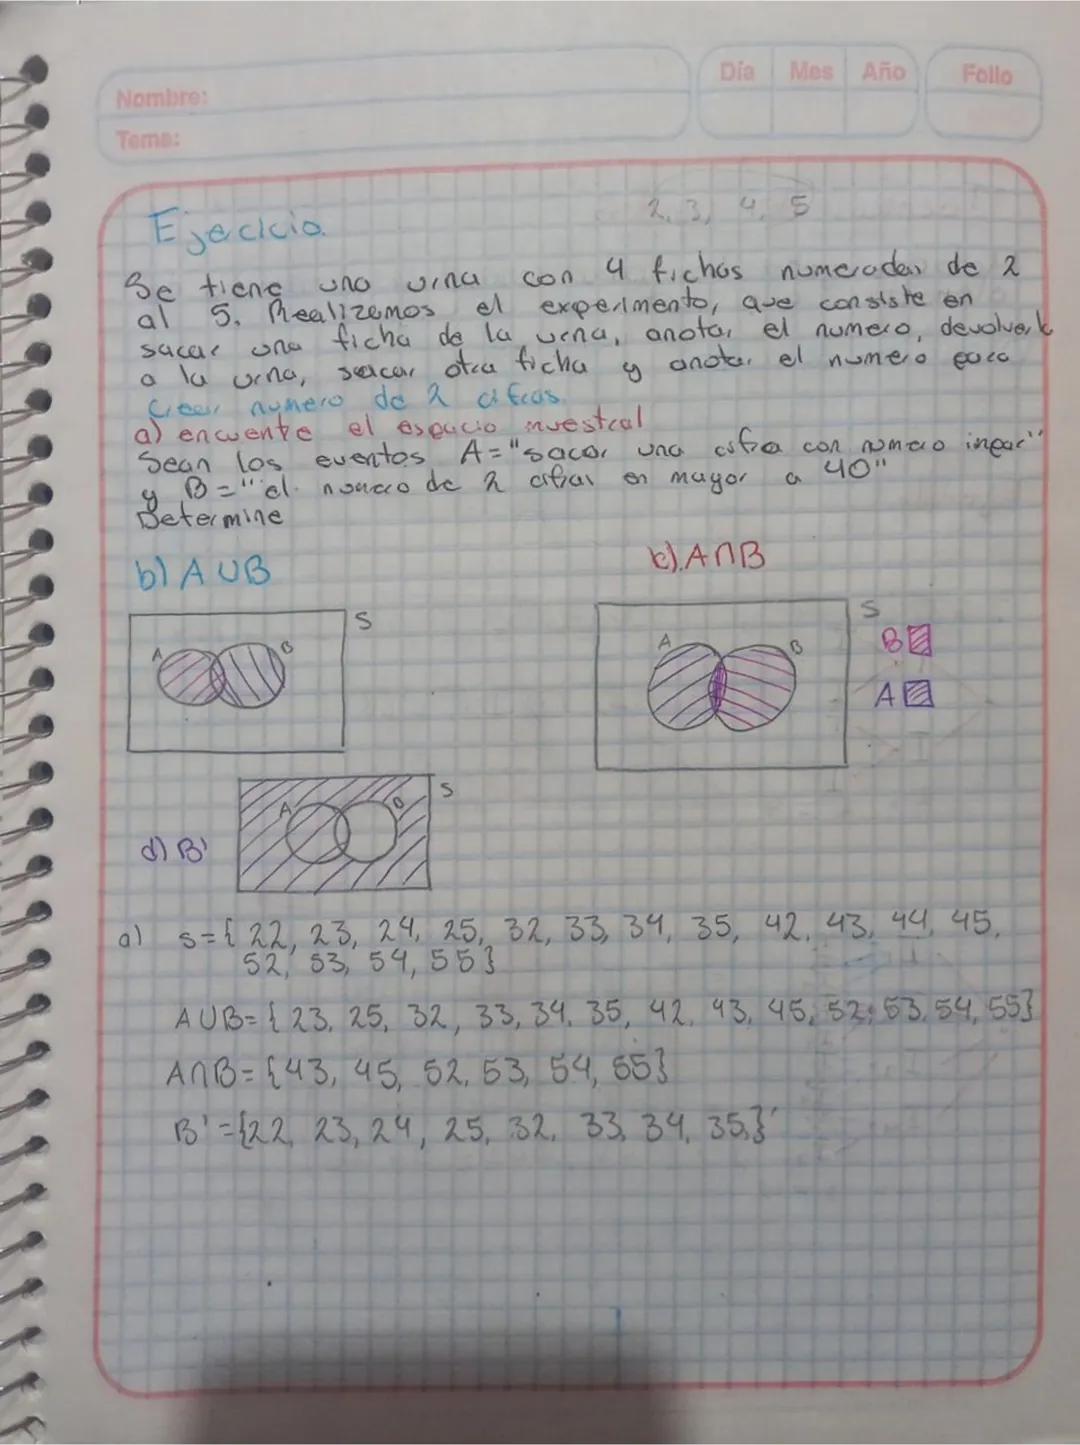 Día Mes Año Folio
Nombre:
Tema:
2, 3, 4, 5
Ejercicio.
Se tiene una urna con 4 fichas numeradas de 2
al 5. Realizemos el experimento, que consiste en
sacar una ficha de la urna, anotar el numero, devolverla
a la urna, sacar otra ficha y anotar el numero para
Crear numero de 2 cifras.
a) encuentre el espacio muestral
Sean los eventos A="sacar una cifra con numero inpar"
y B="el numero de 2 cifras en mayor a 40"
Determine
b) A∪B c).A∩B
S S
A B A B B
A
S
A B
d) B'
a) s={22, 23, 24, 25, 32, 33, 34, 35, 42, 43, 44, 45,
52, 53, 54, 55}
A∪B={23, 25, 32, 33, 34, 35, 42, 43, 45, 52, 53, 54, 55}
A∩B={43, 45, 52, 53, 54, 55}
B'={22, 23, 24, 25, 32, 33, 34, 35,}'